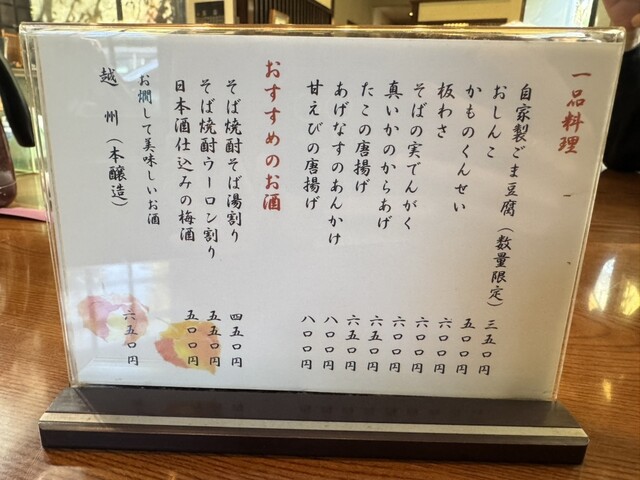 一品料理
自家製ごま豆腐(数量限定) 三五〇円
おしんこ 五〇〇円
かものくんせい 六〇〇円
板わさ 六〇〇円
そばの実でんがく 六〇〇円
真いかのからあげ 六五〇円
たこの唐揚げ 六五〇円
あげなすのあんかけ 八〇〇円
甘えびの唐揚げ 八〇〇円
おすすめのお酒
そば焼酎そば湯割り 四五〇円
そば焼酎ウーロン割り 五五〇円
日本酒仕込みの梅酒 五〇〇円
お燗して美味しいお酒
越州(本醸造) 六五〇円